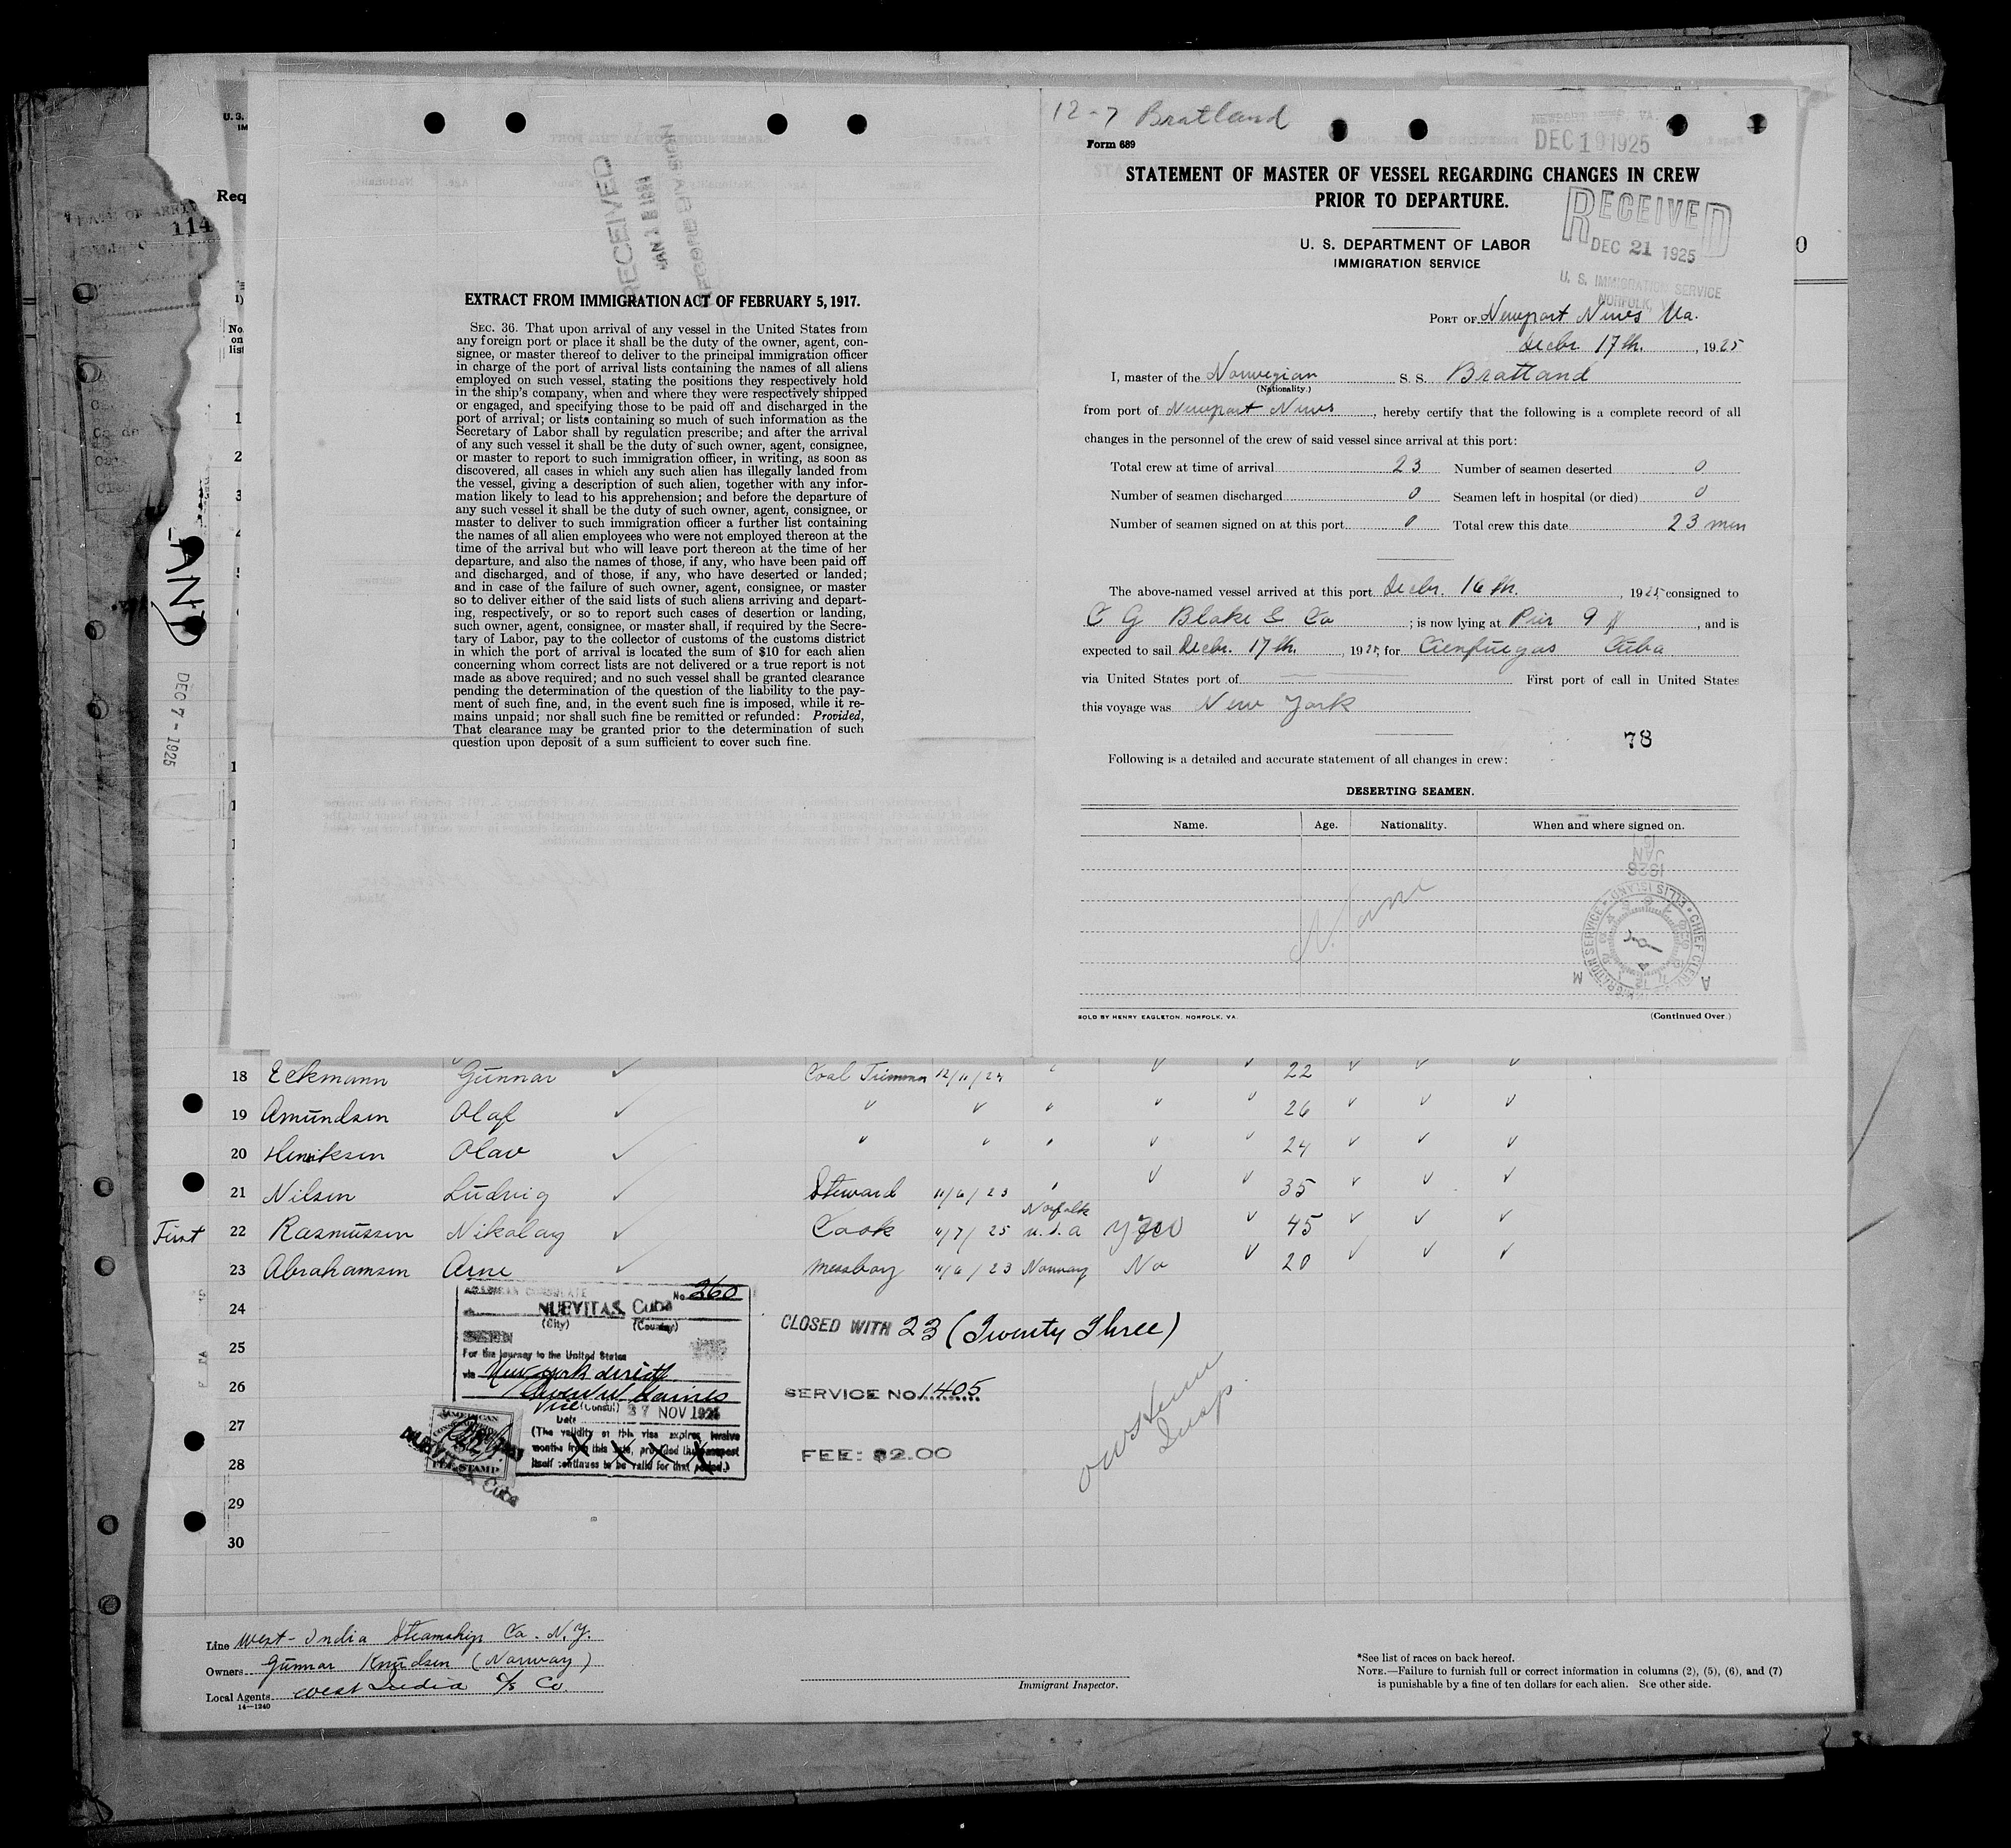 U. S.
IM
Req
114
No.
on
list
1
2
3
4
LAND
DEC 7 - 1925
RECEIVED
EXTRACT FROM IMMIGRATION ACT OF FEBRUARY 5, 1917.
SEC. 36. That upon arrival of any vessel in the United States from
any foreign port or place it shall be the duty of the owner, agent, con-
signee, or master thereof to deliver to the principal immigration officer
in charge of the port of arrival lists containing the names of all aliens
employed on such vessel, stating the positions they respectively hold
in the ship's company, when and where they were respectively shipped
or engaged, and specifying those to be paid off and discharged in the
port of arrival; or lists containing so much of such information as the
Secretary of Labor shall by regulation prescribe; and after the arrival
of any such vessel it shall be the duty of such owner, agent, consignee,
or master to report to such immigration officer, in writing, as soon as
discovered, all cases in which any such alien has illegally landed from
the vessel, giving a description of such alien, together with any infor-
mation likely to lead to his apprehension; and before the departure of
any such vessel it shall be the duty of such owner, agent, consignee, or
master to deliver to such immigration officer a further list containing
the names of all alien employees who were not employed thereon at the
time of the arrival but who will leave port thereon at the time of her
departure, and also the names of those, if any, who have been paid off
and discharged, and of those, if any, who have deserted or landed;
and in case of the failure of such owner, agent, consignee, or master
so to deliver either of the said lists of such aliens arriving and depart-
ing, respectively, or so to report such cases of desertion or landing,
such owner, agent, consignee, or master shall, if required by the Secre-
tary of Labor, pay to the collector of customs of the customs district
in which the port of arrival is located the sum of $10 for each alien
concerning whom correct lists are not delivered or a true report is not
made as above required; and no such vessel shall be granted clearance
pending the determination of the question of the liability to the pay-
ment of such fine, and, in the event such fine is imposed, while it re-
mains unpaid; nor shall such fine be remitted or refunded: Provided,
That clearance may be granted prior to the determination of such
question upon deposit of a sum sufficient to cover such fine.
12-7 Bratland
Form 689
NEWPORT NEWS, VA.
DEC 19 1925
STATEMENT OF MASTER OF VESSEL REGARDING CHANGES IN CREW
PRIOR TO DEPARTURE.
U. S. DEPARTMENT OF LABOR
IMMIGRATION SERVICE
RECEIVED
DEC 21 1925
U. S. IMMIGRATION SERVICE
NORFOLK, VA.
PORT OF Newport News Va.
Decbr 17th., 1925
I, master of the Norwegian S. S. Bratland
(Nationality.)
from port of Newport News, hereby certify that the following is a complete record of all
changes in the personnel of the crew of said vessel since arrival at this port:
Total crew at time of arrival 23 Number of seamen deserted 0
Number of seamen discharged 0 Seamen left in hospital (or died) 0
Number of seamen signed on at this port 0 Total crew this date 23 men
The above-named vessel arrived at this port Decbr. 16th., 1925 consigned to
C G Blake & Co; is now lying at Pier 9, and is
expected to sail Decbr. 17th., 1925, for Cienfuegos Cuba
via United States port of First port of call in United States
this voyage was New York
78
Following is a detailed and accurate statement of all changes in crew:
DESERTING SEAMEN.
Name. Age. Nationality. When and where signed on.
None
JAN
1926
IMMIGRATION SERVICE • ELLIS ISLAND • CHIEF CLERK
A M
SOLD BY HENRY EAGLETON, NORFOLK, VA. (Continued Over.)
18 Eckmann Gunnar ✓ Coal Trimmer 12/11/24 " ✓ ✓ 22 ✓ ✓ ✓
19 Amundsen Olaf ✓ " " " ✓ ✓ 26 ✓ ✓ ✓
20 Henriksen Olav ✓ " " " ✓ ✓ 24 ✓ ✓ ✓
21 Nilsen Ludvig ✓ Steward 11/6/23 " ✓ ✓ 35 ✓ ✓ ✓
First 22 Rasmussen Nikolay ✓ Cook 4/7/25 Norfolk u.s.a Yes ✓ 45 ✓ ✓ ✓
23 Abrahamsen Arne ✓ Messboy 11/6/23 Norway No ✓ 20 ✓ ✓ ✓
24
25
26
27
28
29
30
AMERICAN CONSULATE No. 260
NUEVITAS, Cuba
(City) (Country)
SEEN
For the journey to the United States
via New york direct
Vice (Consul)
Date 27 NOV 1925
(The validity of this visa expires twelve
months from this date, provided the passport
itself continues to be valid for that period.)
AMERICAN
FEE STAMP
Cuba
CLOSED WITH 23 (Twenty Three)
SERVICE NO. 1405
FEE: $2.00
Line West-India Steamship Co. N.Y.
Owners Gunnar Knudsen (Norway)
Local Agents West India S/S Co.
14—1240
Immigrant Inspector.
*See list of races on back hereof.
NOTE.—Failure to furnish full or correct information in columns (2), (5), (6), and (7)
is punishable by a fine of ten dollars for each alien. See other side.